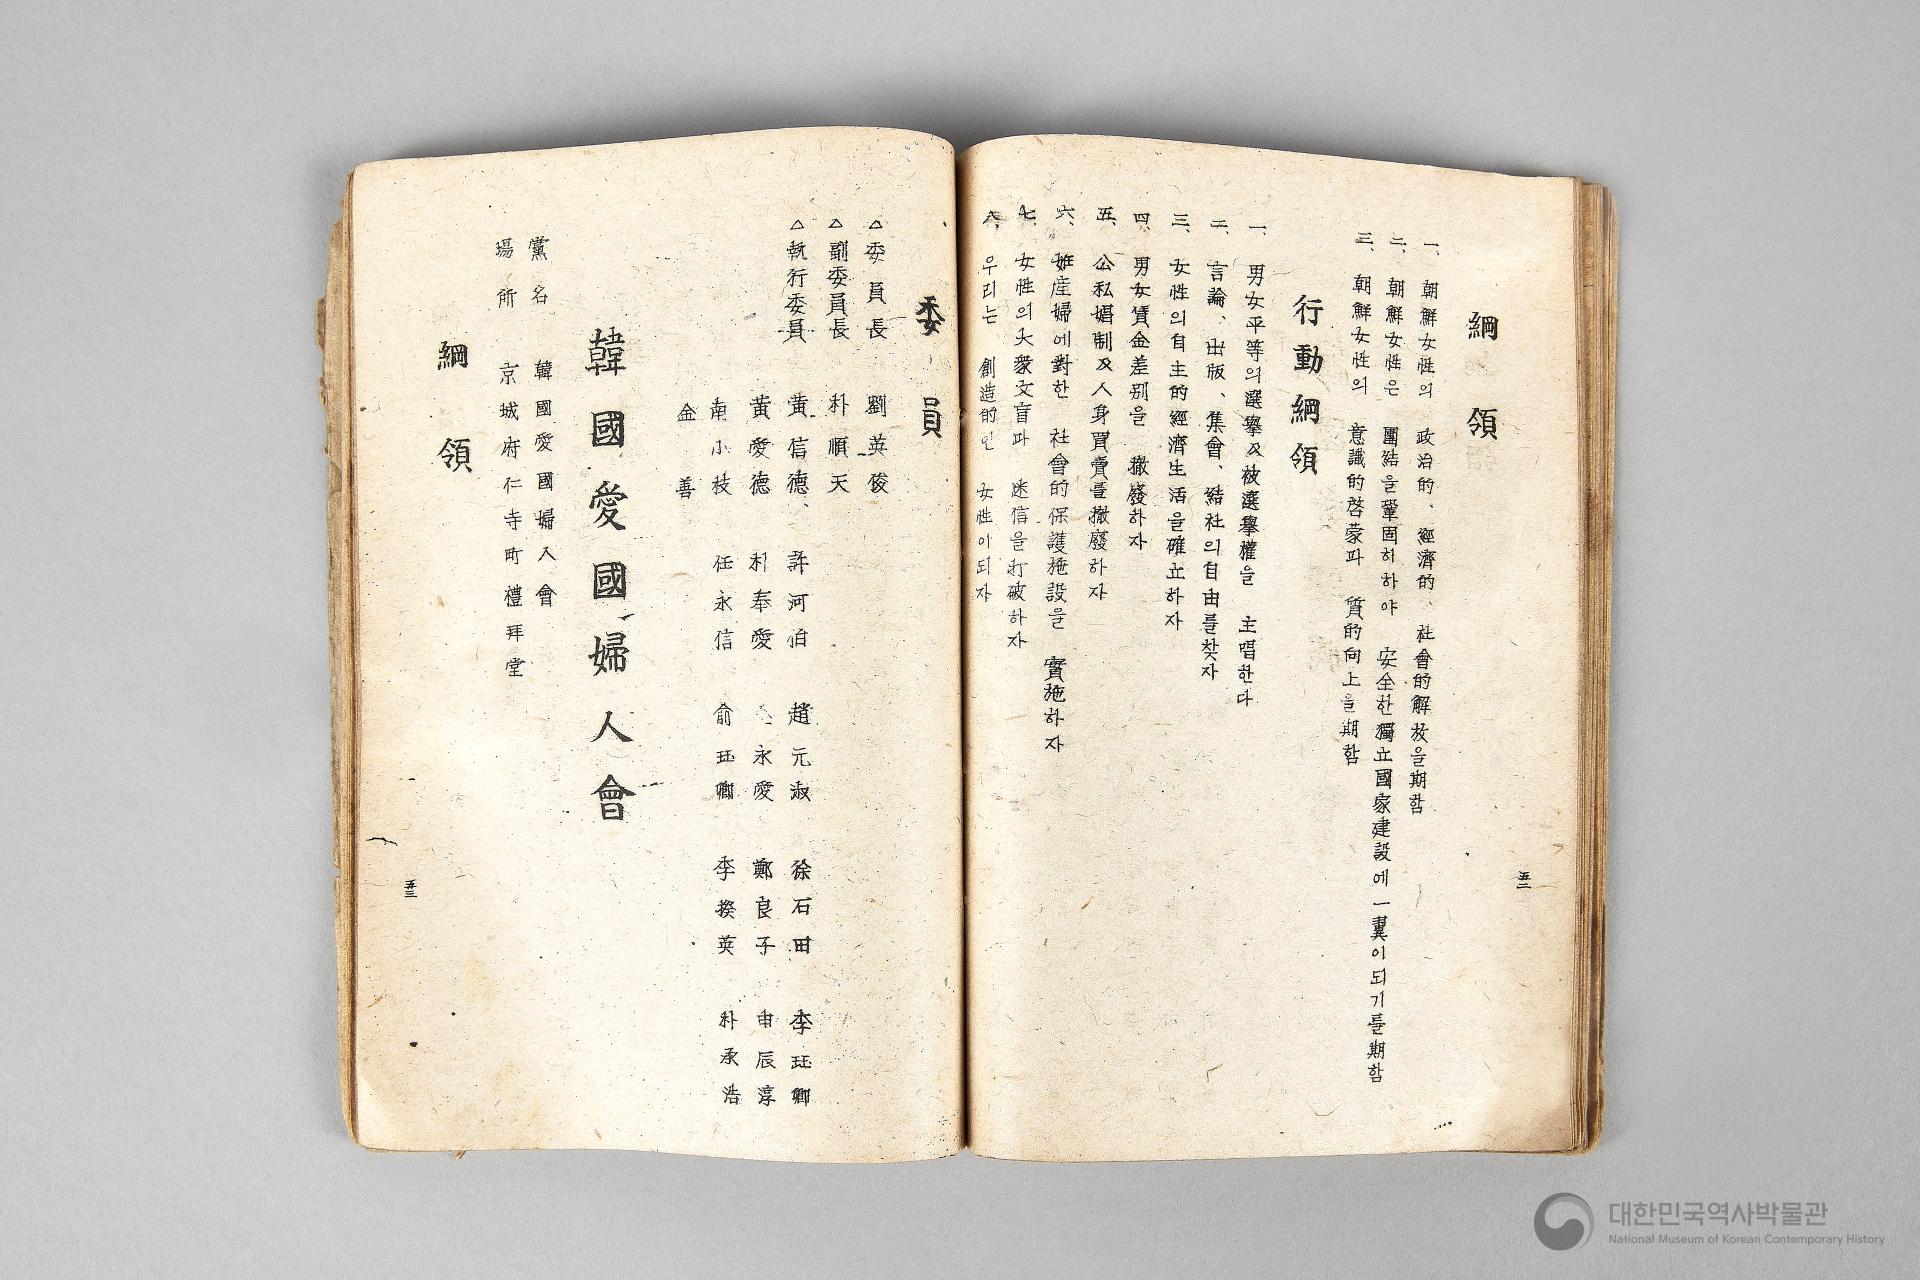 綱領
一、朝鮮女性의 政治的、經濟的、社會的解放을期함
二、朝鮮女性은 團結을鞏固히하야 安全한獨立國家建設에一翼이되기를期함
三、朝鮮女性의 意識的啓蒙과 質的向上을期함
行動綱領
一、男女平等의選擧及被選擧權을 主唱한다
二、言論、出版、集會、結社의自由를찾자
三、女性의自主的經濟生活을確立하자
四、男女賃金差別을 撤廢하자
五、公私娼制及人身買賣를撤廢하자
六、姙産婦에對한 社會的保護施設을 實施하자
七、女性의大衆文盲과 迷信을打破하자
八、우리는 創造的인 女性이되자
五二
委員
△委員長 劉英俊
△副委員長 朴順天
△執行委員 黃信德、 許河伯 趙元淑 徐石田 李珏卿
黃愛德 朴奉愛 永愛 鄭良子 辰淳
南小枝 任永信 俞珏卿 李揆英 朴承浩
金善
韓國愛國婦人會
黨名 韓國愛國婦人會
場所 京城府仁寺町禮拜堂
綱領
五三
대한민국역사박물관
National Museum of Korean Contemporary History